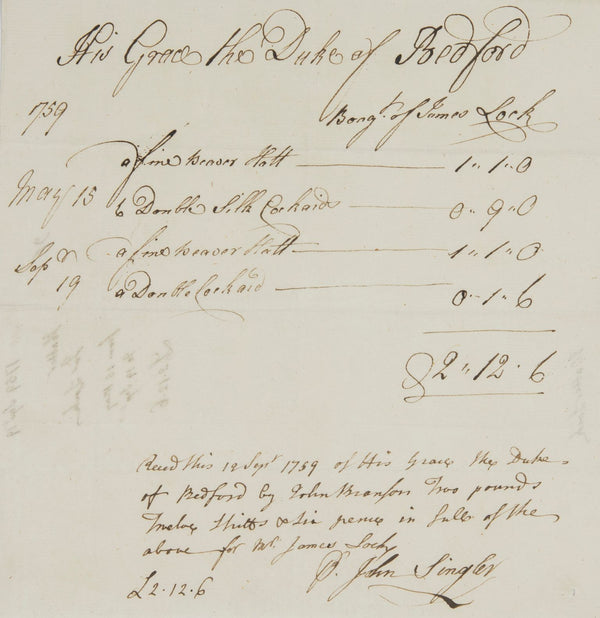 His Grace the Duke of Bedford
1759
Bougt. of James Lock
a fine Beaver Hatt 1" 1" 0
May 15
6 Double Silk Cockaids 0" 9" 0
a fine Beaver Hatt 1" 1" 0
Sepr
19
a Double Cockaid 0" 1" 6
£2 " 12 . 6
Recd this 19 Sept 1759 of His Grace the Duke
of Bedford by John Branson Two pounds
Twelve Shills & Six pence in full of the
above for Mr. James Lock
£2.12.6
Pr. John Singler